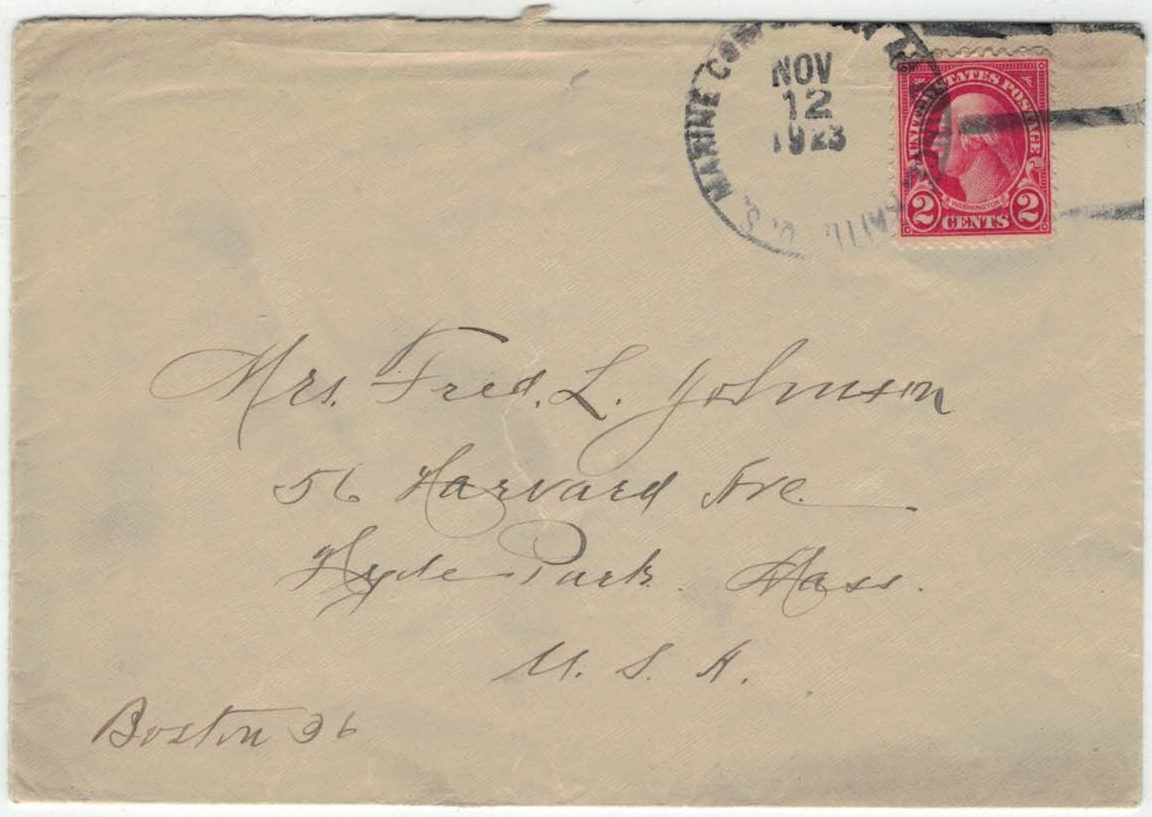 U.S. MARINE
NOV
12
1923
UNITED STATES POSTAGE
WASHINGTON
2 CENTS 2
Mrs. Fred. L. Johnson
56 Harvard Ave.
Hyde Park. Mass.
U. S. A.
Boston 36